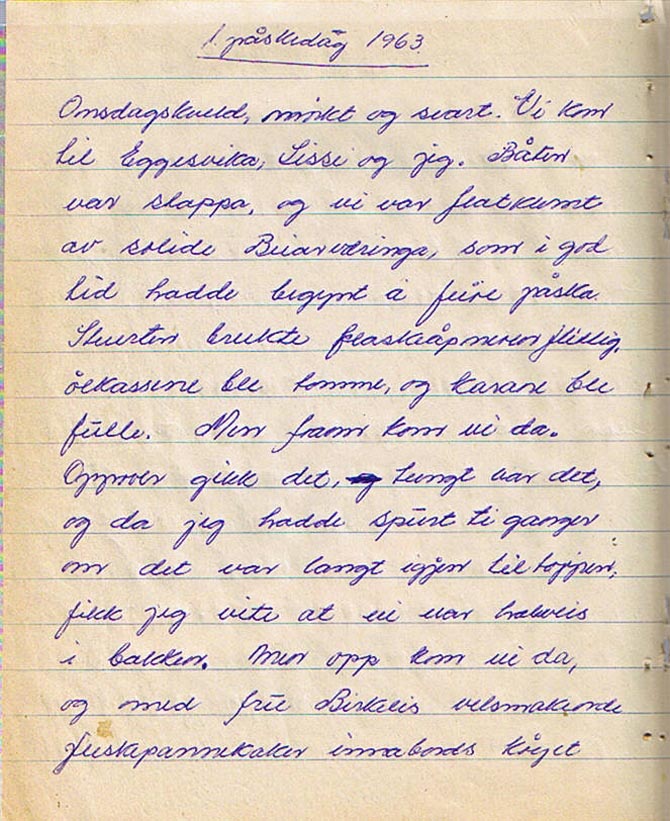 1. påskedag 1963.
Onsdagskveld, mørkt og svart. Vi kom
til Eggesvika, Sissi og jig. Båten
var slappa, og vi var
av solide Beiarværinga, som i god
tid hadde begynt å feire påska.
Stuerten brukte flaskeåpneren flittig,
ølkassene ble tomme, og karane ble
fulle. Men fram kom vi da.
Oppover gikk det, tungt var det,
og da jeg hadde spurt ti ganger
om det var langt igjen til toppen,
fikk jeg vite at vi var halvveis
i bakken. Men opp kom vi da,
og med fru Birkelis velsmakende
fleskepannekaker innabords krøjet